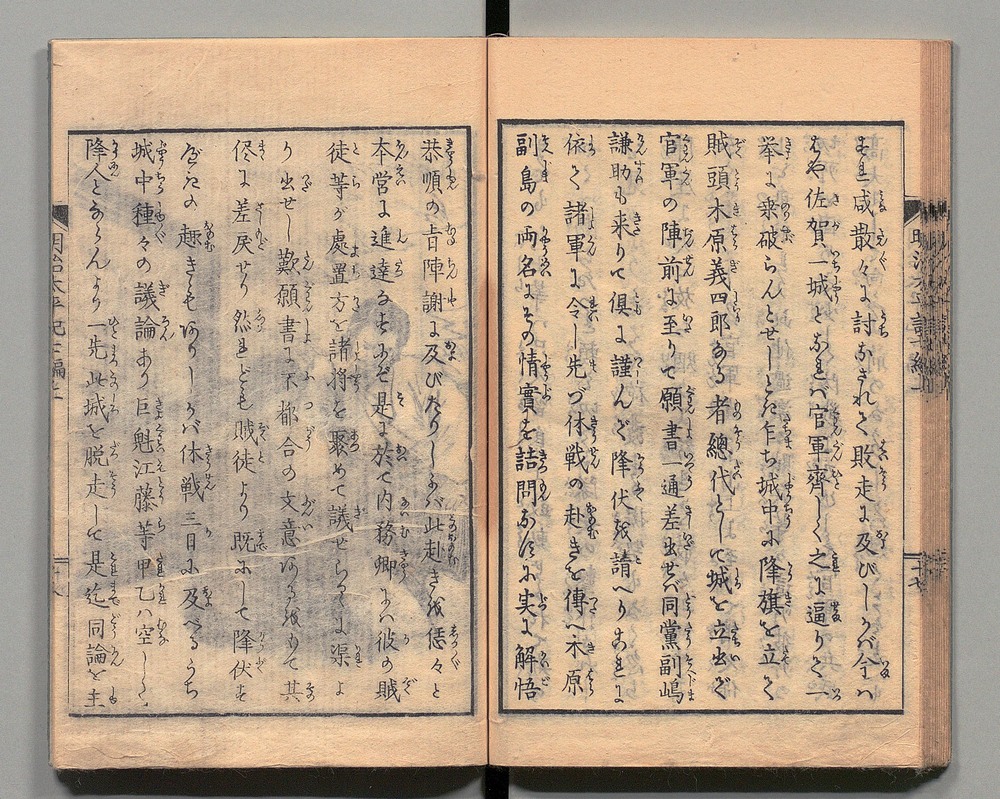 咸散々に討なされて敗走に及びしかバ今ハ
はや佐賀一城となれバ官軍齊しく之に逼りて一
挙に乗破らんとせしとき乍ち城中に降旗を立て
賊頭木原義四郎なる者總代として城を立出で
官軍の陣前に至りて願書一通差出せバ同黨副嶋
謙助も来りて倶に謹んで降伏を請へり
依て諸軍に令し先づ休戦の赴きを傳へ木原
副島の両名にその情實を詰問なすに実に解悟
恭順の旨陣謝に及びたりしかバ此赴きを恁々と
本営に進達なすにぞ是に於て内務卿にハ彼の賊
徒等が處置方を諸将を聚めて議せらるゝに渠よ
り出せし歎願書に不都合の文意あるをもて其
侭に差戻せり然れども賊徒より既にして降伏を
趣きもありしかバ休戦三日に及べるうち
城中種々の議論あり巨魁江藤等甲乙ハ空しく
降人とならんより一先此城を脱走して是迄同論を主
明治太平記七編上